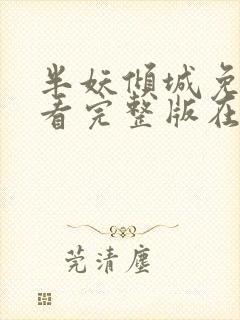 半妖倾城免
看完整版在
莞清尘